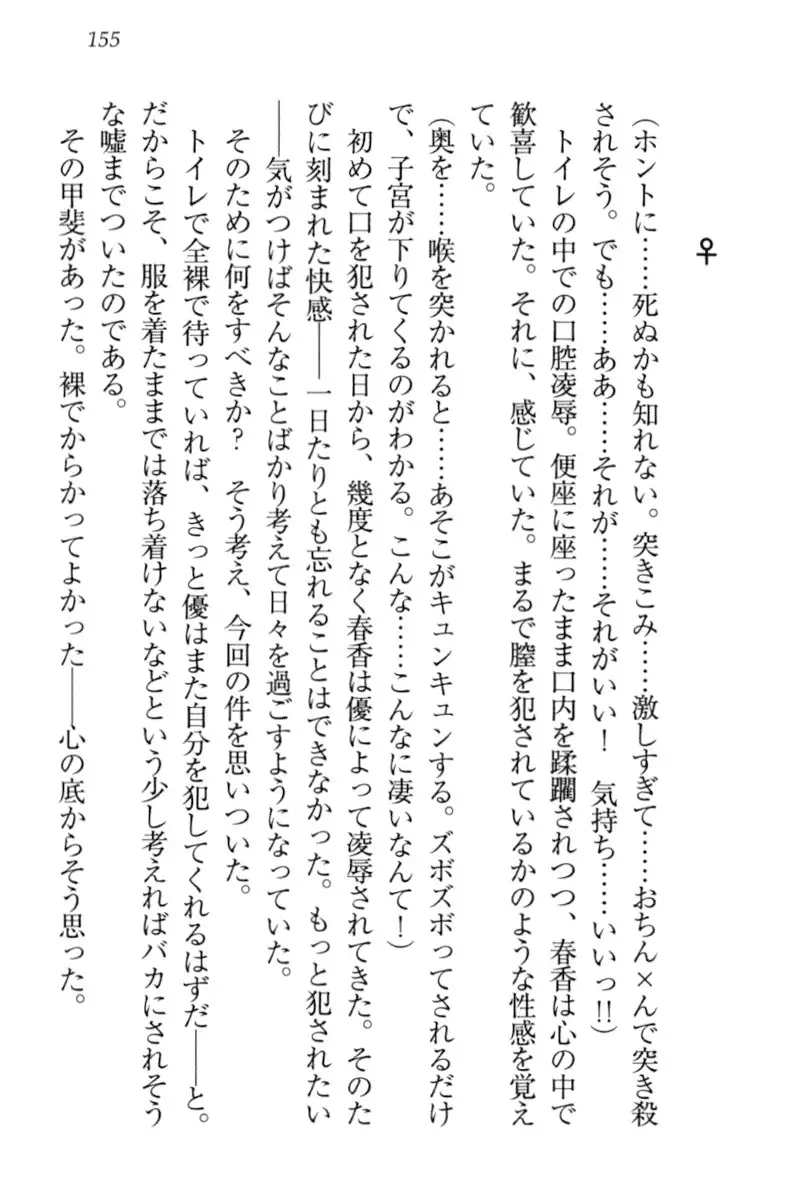 155
♀
(ホントに……死ぬかも知れない。突きこみ……激しすぎて……おちん×んで突き殺
されそう。でも……ああ……それが……それがいい！　気持ち……いいっ!!)
トイレの中での口腔凌辱。便座に座ったまま口内を蹂躙されつつ、春香は心の中で
歓喜していた。それに、感じていた。まるで膣を犯されているかのような性感を覚え
ていた。
(奥を……喉を突かれると……あそこがキュンキュンする。ズボズボってされるだけ
で、子宮が下りてくるのがわかる。こんな……こんなに凄いなんて！)
初めて口を犯された日から、幾度となく春香は優によって凌辱されてきた。そのた
びに刻まれた快感――一日たりとも忘れることはできなかった。もっと犯されたい
――気がつけばそんなことばかり考えて日々を過ごすようになっていた。
そのために何をすべきか？　そう考え、今回の件を思いついた。
トイレで全裸で待っていれば、きっと優はまた自分を犯してくれるはずだ――と。
だからこそ、服を着たままでは落ち着けないなどという少し考えればバカにされそう
な嘘までついたのである。
その甲斐があった。裸でからかってよかった――心の底からそう思った。